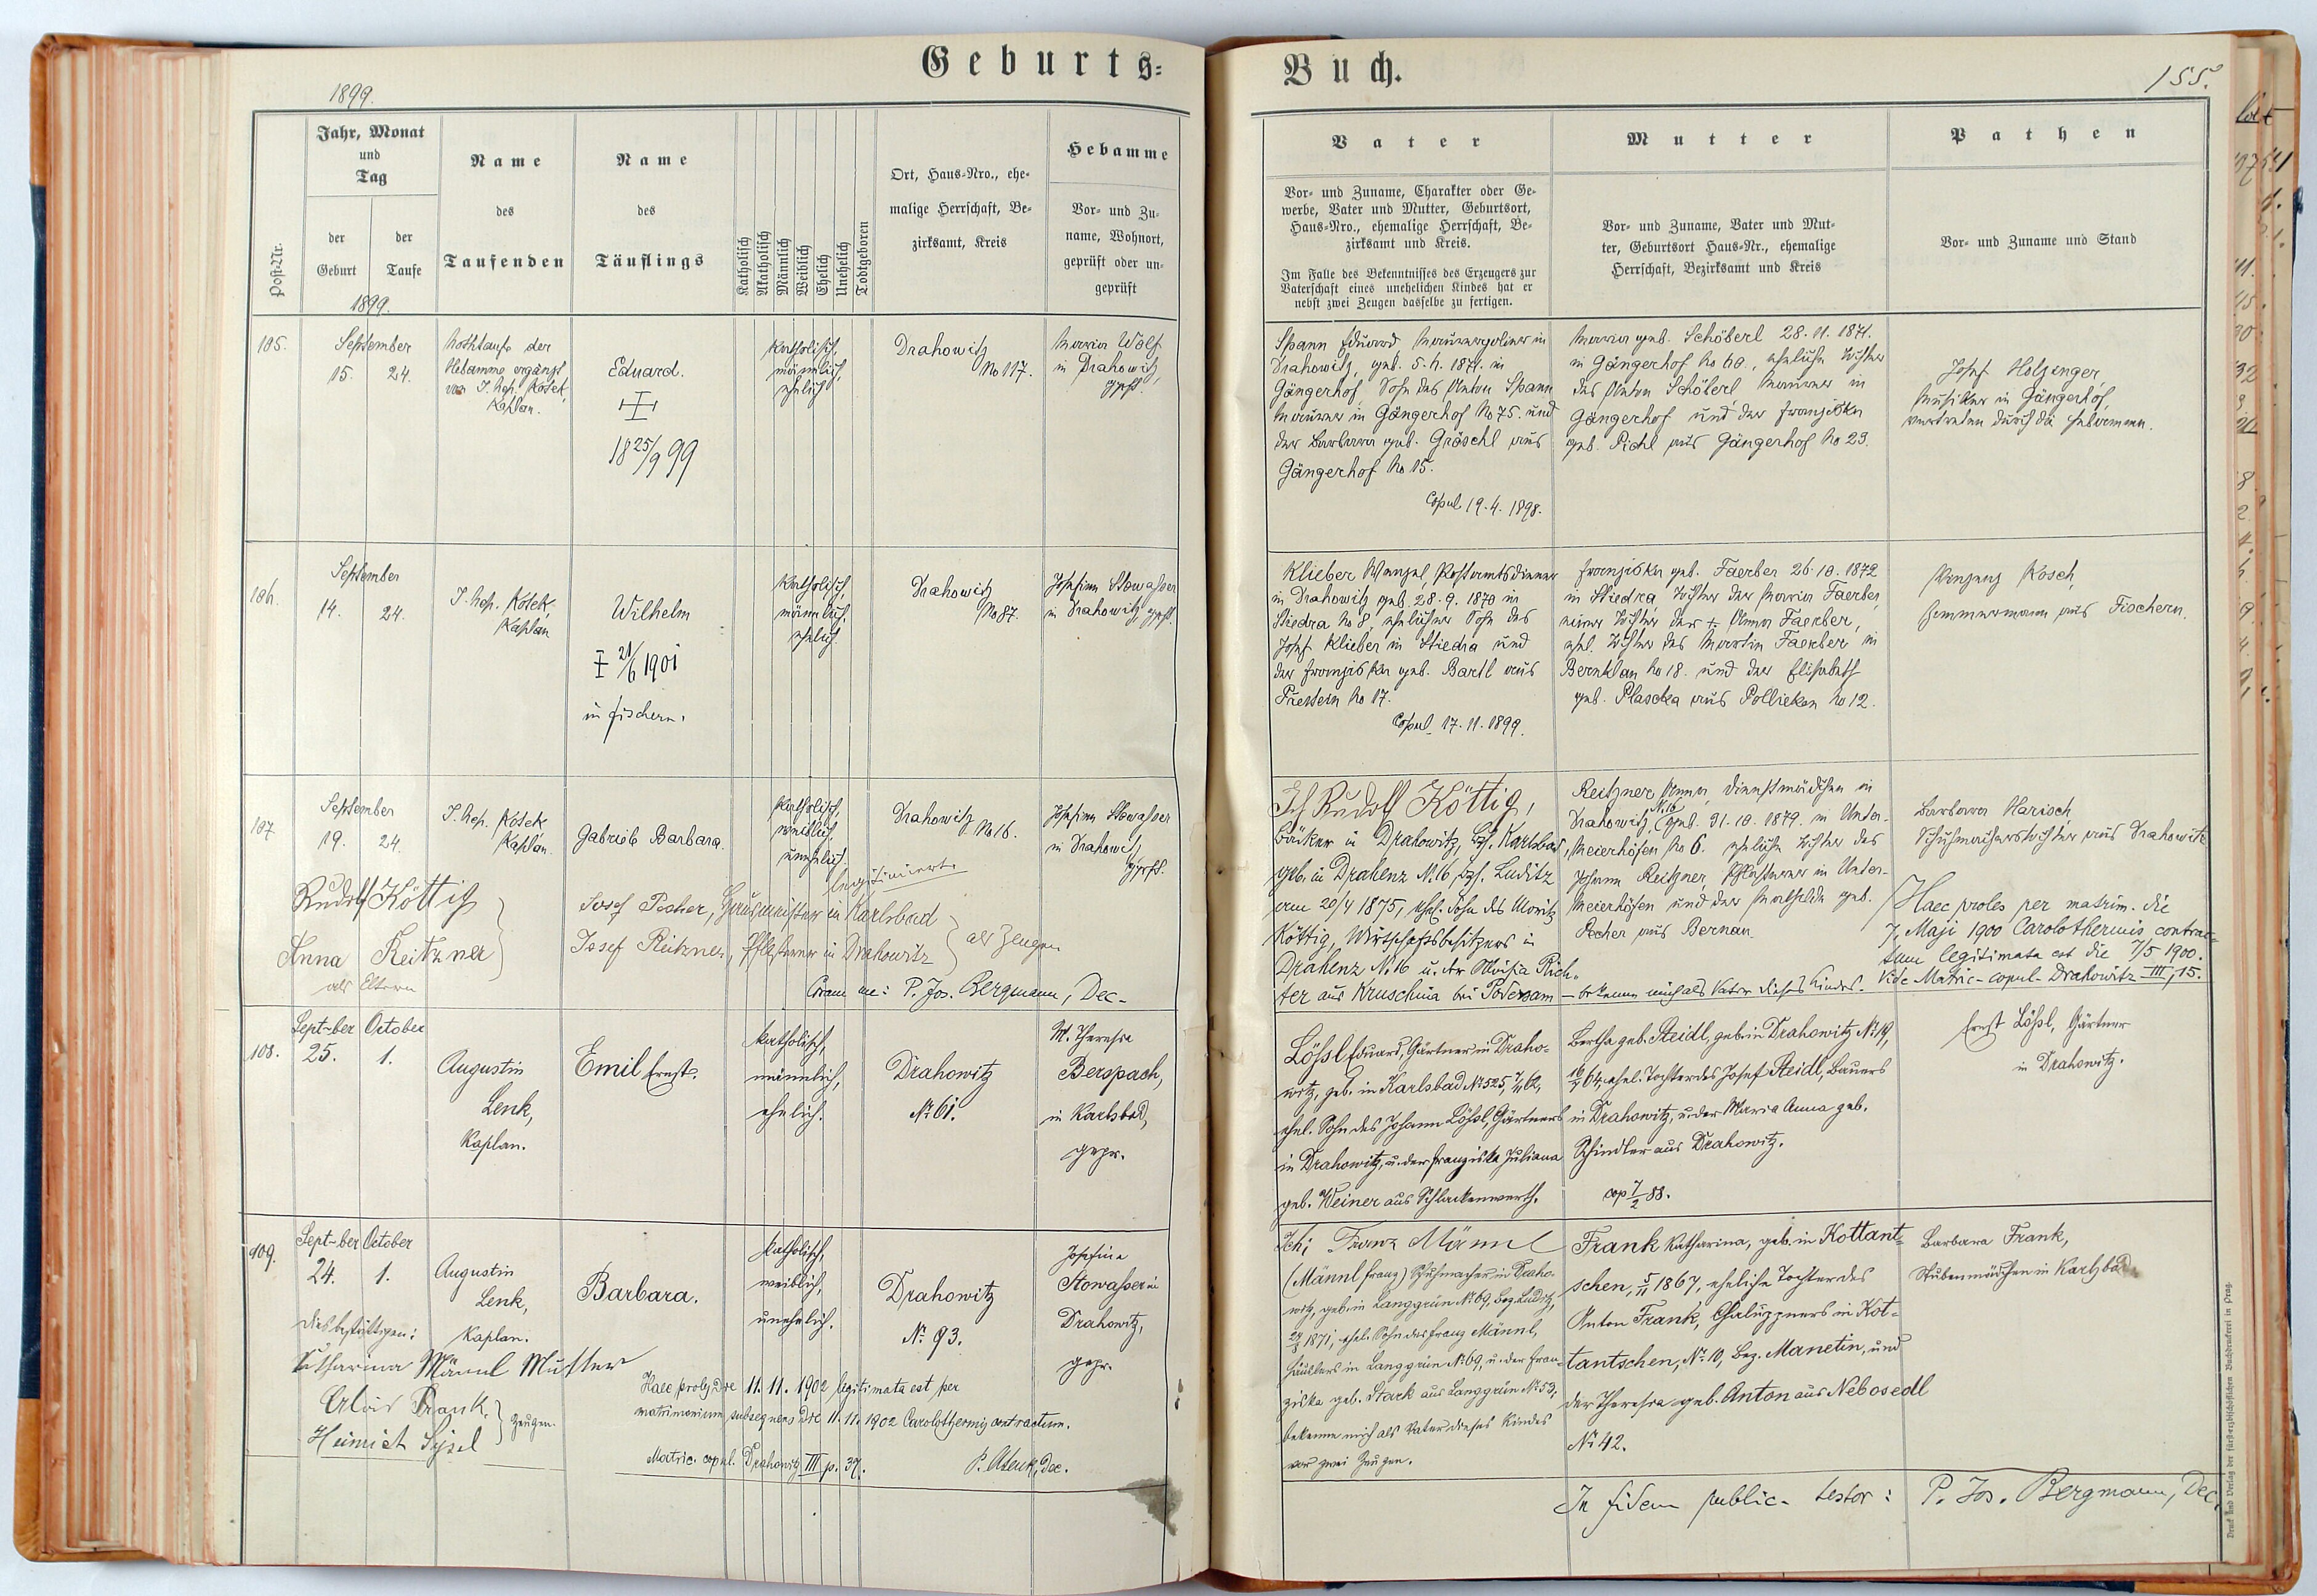 Geburts-
Buch.
1899.
155.
Post-Nr.
Jahr, Monat
und
Tag
der
Geburt
der
Taufe
1899.
Name
des
Taufenden
Name
des
Täuflings
Katholisch
Akatholisch
Männlich
Weiblich
Ehelich
Unehelich
Todtgeboren
Ort, Haus-Nro., ehe-
malige Herrschaft, Be-
zirksamt, Kreis
Hebamme
Vor- und Zu-
name, Wohnort,
geprüft oder un-
geprüft
Vater
Vor- und Zuname, Charakter oder Ge-
werbe, Vater und Mutter, Geburtsort,
Haus-Nro., ehemalige Herrschaft, Be-
zirksamt und Kreis.
Im Falle des Bekenntnisses des Erzeugers zur
Vaterschaft eines unehelichen Kindes hat er
nebst zwei Zeugen dasselbe zu fertigen.
Mutter
Vor- und Zuname, Vater und Mut-
ter, Geburtsort Haus-Nr., ehemalige
Herrschaft, Bezirksamt und Kreis
Pathen
Vor- und Zuname und Stand
105.
September
15. 24.
Nothtaufe der
Hebamme ergänzt
von J. Nep. Kosek,
Kaplan.
Eduard.
18 25/9 99
katholisch,
männlich,
ehelich
Drahowitz
No 117.
Maria Wolf
in Drahowitz,
gepr.
Spann Eduard Maurerpolier in
Drahowitz, geb. 5. 4. 1871. in
Gängerhof, Sohn des Anton Spann
Maurer in Gängerhof No 75. und
der Barbara geb. Gröschl aus
Gängerhof No 15.
Copul 19. 4. 1898.
Maria geb. Schöberl 28. 11. 1871.
in Gängerhof No 60., eheliche Tochter
des Anton Schöberl, Maurer in
Gängerhof und der Franziska
geb. Pichl aus Gängerhof No 23.
Josef Holzinger
Musiker in Gängerhof,
vertreten durch die Hebamme.
106.
September
14. 24.
J. Nep. Kosek,
Kaplan
Wilhelm
21/6 1901
in Fischern.
katholisch,
männlich,
ehelich.
Drahowitz
No 87.
Josefine Stowasser
in Drahowitz, gepr.
Klieber Wenzel, Postamtsdiener
in Drahowitz geb. 28. 9. 1870 in
Stiedra No 8, ehelicher Sohn des
Josef Klieber in Stiedra und
der Franziska geb. Bartl aus
No 17.
Copul. 17. 11. 1899.
Franziska geb. Faerber 26. 10. 1872
in Stiedra, Tochter der Maria Faerber,
einer Tochter der + Anna Faerber,
ehel. Tochter des Martin Faerber in
Bernklau No 18. und der Elisabeth
geb. Plaschka aus Pollieken No 12.
Vinzenz Kosch,
Zimmermann aus Fischern.
107.
September
19. 24.
J. Nep. Kosek
Kaplan.
Gabriele Barbara.
katholisch,
weiblich.
unehelich.
legitimiert.
Drahowitz
No 16.
Josefine Stowasser
in Drahowitz,
gepr.
Ich Rudolf Köttig,
Bäcker in Drahowitz, Bez. Karlsbad,
geb. in Drahenz No. 16, Bez. Luditz
am 20/4 1875, ehel. Sohn des Moritz
Köttig, Wirtschaftsbesitzers in
Drahenz No. 16 u. der Aloisia Rich-
ter aus Kruschina bei Podersam – bekenne mich als Vater dieses Kindes.
Reitzner Anna, Dienstmädchen in
Drahowitz No. 16, geb. 31. 10. 1879. in Unter-
Meierhöfen No 6. eheliche Tochter des
Johann Reitzner, Pflasterer in Unter-
Meierhöfen und der Mathilde geb.
Pecher aus Bernau
Barbara Harisch,
Schuhmacherstochter aus Drahowitz
Haec proles per matrim. die
7. Maji 1900 Carolothermis contrac-
tum legitimata est die 7/5 1900.
Vide Matric- copul- Drahowitz III, 15.
Rudolf Köttig
Anna Reitzner
als Eltern
Josef Pecher, Hausmeister in Karlsbad
Josef Reitzner, Pflasterer in Drahowitz
als Zeugen
Coram me: P. Jos. Bergmann, Dec-
108.
Sept-ber October
25. 1.
Augustin
Lenk,
Kaplan.
Emil Ernst.
katholisch,
männlich,
ehelich.
Drahowitz
No 61.
M. Theresia
Berspach,
in Karlsbad,
gepr.
Lößl Eduard, Gärtner in Draho-
witz, geb. in Karlsbad No 525, 62,
ehel. Sohn des Johann Lößl, Gärtners
in Drahowitz, u. der Franziska Juliana
geb. Weiner aus Schlackenwerth.
Bertha geb. Steidl, geb. in Drahowitz No 19,
64, ehel. Tochter des Josef Steidl, Bauers
in Drahowitz, u. der Maria Anna geb.
Schindler aus Drahowitz.
cop 7/2 88.
Ernst Lößl, Gärtner
in Drahowitz.
109.
Sept-ber October
24. 1.
Augustin
Lenk,
Kaplan.
Barbara.
katholisch,
weiblich,
unehelich.
Drahowitz
No. 93.
Josefine
Stowasser in
Drahowitz,
gepr.
Ich, Franz Männl
(Männl Franz) Schuhmacher in Draho-
witz, geb. in Langgrün No 69, Bez. Luditz,
1871, ehel. Sohn des Franz Männl,
Häuslers in Langgrün No 69, u. der Fran-
ziska geb. Stark aus Langgrün No 53;
bekenne mich als Vater dieses Kindes
vor zwei Zeugen.
Frank Katharina, geb. in Kottant-
schen, 5/11 1867, eheliche Tochter des
Anton Frank, Chaluppners in Kot-
tantschen, No. 10, Bez. Manetin, und
der Theresia geb. Anton aus Nebosedl
No 42.
Barbara Frank,
Stubenmädchen in Karlsbad.
Dies bestättigen:
Katharina Männl Mutter
Alois Frank,
Heinrich
Zeugen.
Haec proles die 11. 11. 1902 legitimata est per
matrimonium subsequens die 11. 11. 1902 Carolothermis contractum.
Matric. copul. Drahowitz III p. 37.
P. A Lenk, Dec.
In fidem public- testor: P. Jos. Bergmann, Dec.
Druck und Verlag der fürsterzbischöflichen Buchdruckerei in Prag.